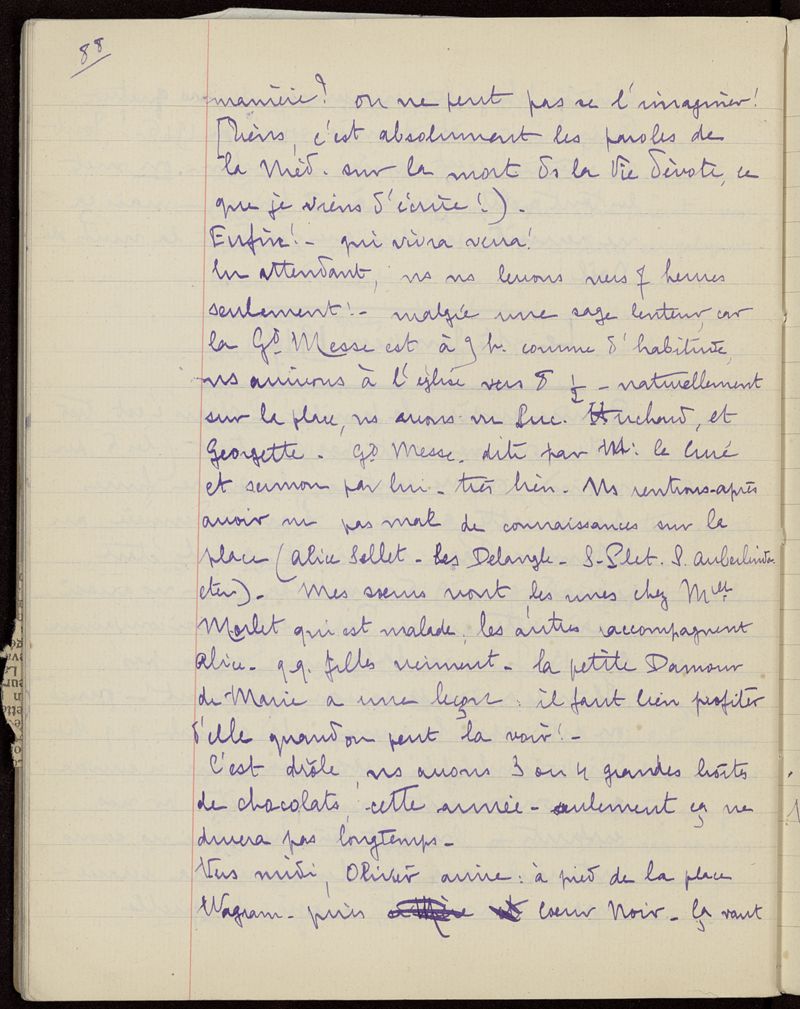 88
manière? on ne peut pas se l'imaginer!
[Tiens, c'est absolument les paroles de
la Méd. sur la mort ds la Vie dévote, ce
que je viens d'écrire!).
Enfin! - qui vivra verra!
En attendant, ns ns levons vers 7 heures
seulement! - malgré une sage lenteur, car
la Gd Messe est à 9 h. comme d'habitude,
ns arrivons à l'église vers 8 ½ - naturellement
sur la place, ns avons vu Luc. Huchard, et
Georgette. Gd Messe. dite par M: le Curé
et sermon par lui - très bien. Ns rentrons - après
avoir vu pas mal de connaissances sur la
place (Alice Sellet - Les Delangle - S. Plet. S.
etc) - Mes sœurs vont, les unes chez Melle
Morlet qui est malade, les autres accompagnent
Alice. q.q. filles viennent - la petite Damour
de Marie a une leçon : il faut bien profiter
d'elle quand on peut la voir! -
C'est drôle, ns avons 3 ou 4 grandes boîtes
de chocolats, cette année - seulement ça ne
durera pas longtemps -
Vers midi, Olivier arrive : à pied de la place
Wagram - puis Coeur Noir - Ça vaut